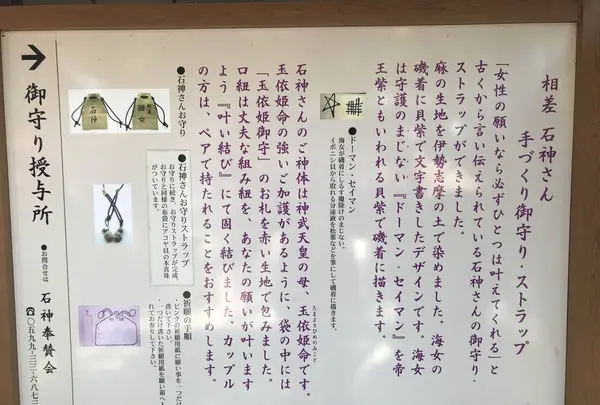 相差 石神さん
手づくり御守り・ストラップ
「女性の願いなら必ずひとつは叶えてくれる」と
古くから言い伝えられている石神さんの御守り・
ストラップができました。
麻の生地を伊勢志摩の土で染めました。海女の
磯着に貝紫で文字書きしたデザインです。海女
は守護のまじない『ドーマン・セイマン』を帝
王紫ともいわれる貝紫で磯着に描きます。
●ドーマン・セイマン
海女が磯着にしるす魔除けのまじない。
イボニシ貝から取れる分泌液を松葉などを筆にして磯着に描きます。
石神さんのご神体は神武天皇の母、玉依姫命です。
たまよりひめのみこと
玉依姫命の強いご加護があるように、袋の中には
「玉依姫御守」のお札を赤い生地で包みました。
口紐は丈夫な組み紐を、あなたの願いが叶います
よう『叶い結び』にて固く結びました。カップル
の方は、ペアで持たれることをおすすめします。
●石神さんお守り
石神
●石神さんお守りストラップ
お守りに続き、お守りストラップが完成。
お守りと同様の布袋にアコヤ貝の本真珠
がついています。
●祈願の手順
・ピンクの祈願用紙に願い事を一つだけ
書いて下さい。
・一つだけ書いた祈願用紙を願い箱へ入
れてお参りして下さい。
→ 御守り授与所
●お問合せは
石神奉賛会
☎〇五九九-三三-六八七三